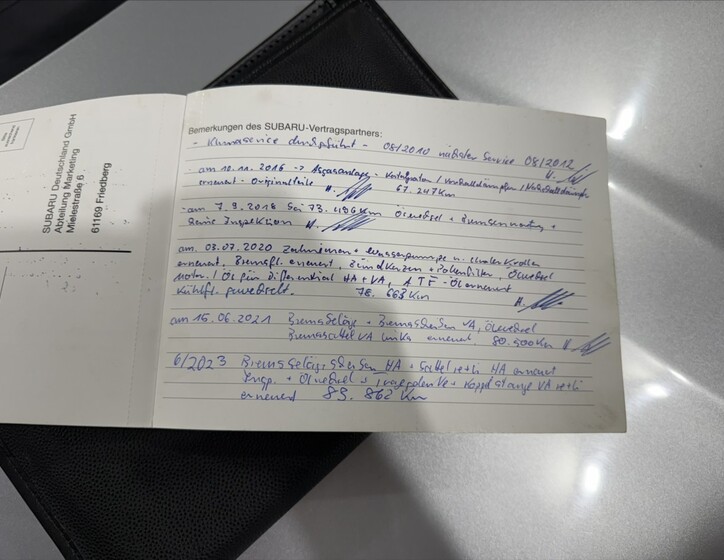 SUBARU Deutschland GmbH
Abteilung Marketing
Mielestraße 6
61169 Friedberg
Bemerkungen des SUBARU-Vertragspartners:
- Klimaservice durchgeführt - 08/2010 nächster Service 08/2012
am 10.11.2016 -> Abgasanlage - Katalysator / Vorschalldämpfer / Nachschalldämpfer
erneuert - Originalteile 67.247 Km
- am 7.9.2018 bei 73.496 Km Ölwechsel + Bremsenwartung +
keine Inspektion
am 03.07.2020 Zahnriemen + Wasserpumpe u. Umlenkrollen
erneuert, Bremsfl. erneuert, Zündkerzen + Pollenfilter, Ölwechsel
Motor / Öl für Differential HA + VA, ATF-Öl erneuert
Kühlfl. gewechselt. 78.663 Km
am 15.06.2021 Bremsbeläge + Bremsscheiben VA, Ölwechsel
Bremssattel VA links erneuert 80.500 Km
6/2023 Bremsbeläge Scheiben HA + Sattel rechts HA erneuert
Insp. + Ölwechsel + + Koppelstange VA rechts
erneuert 83.862 Km